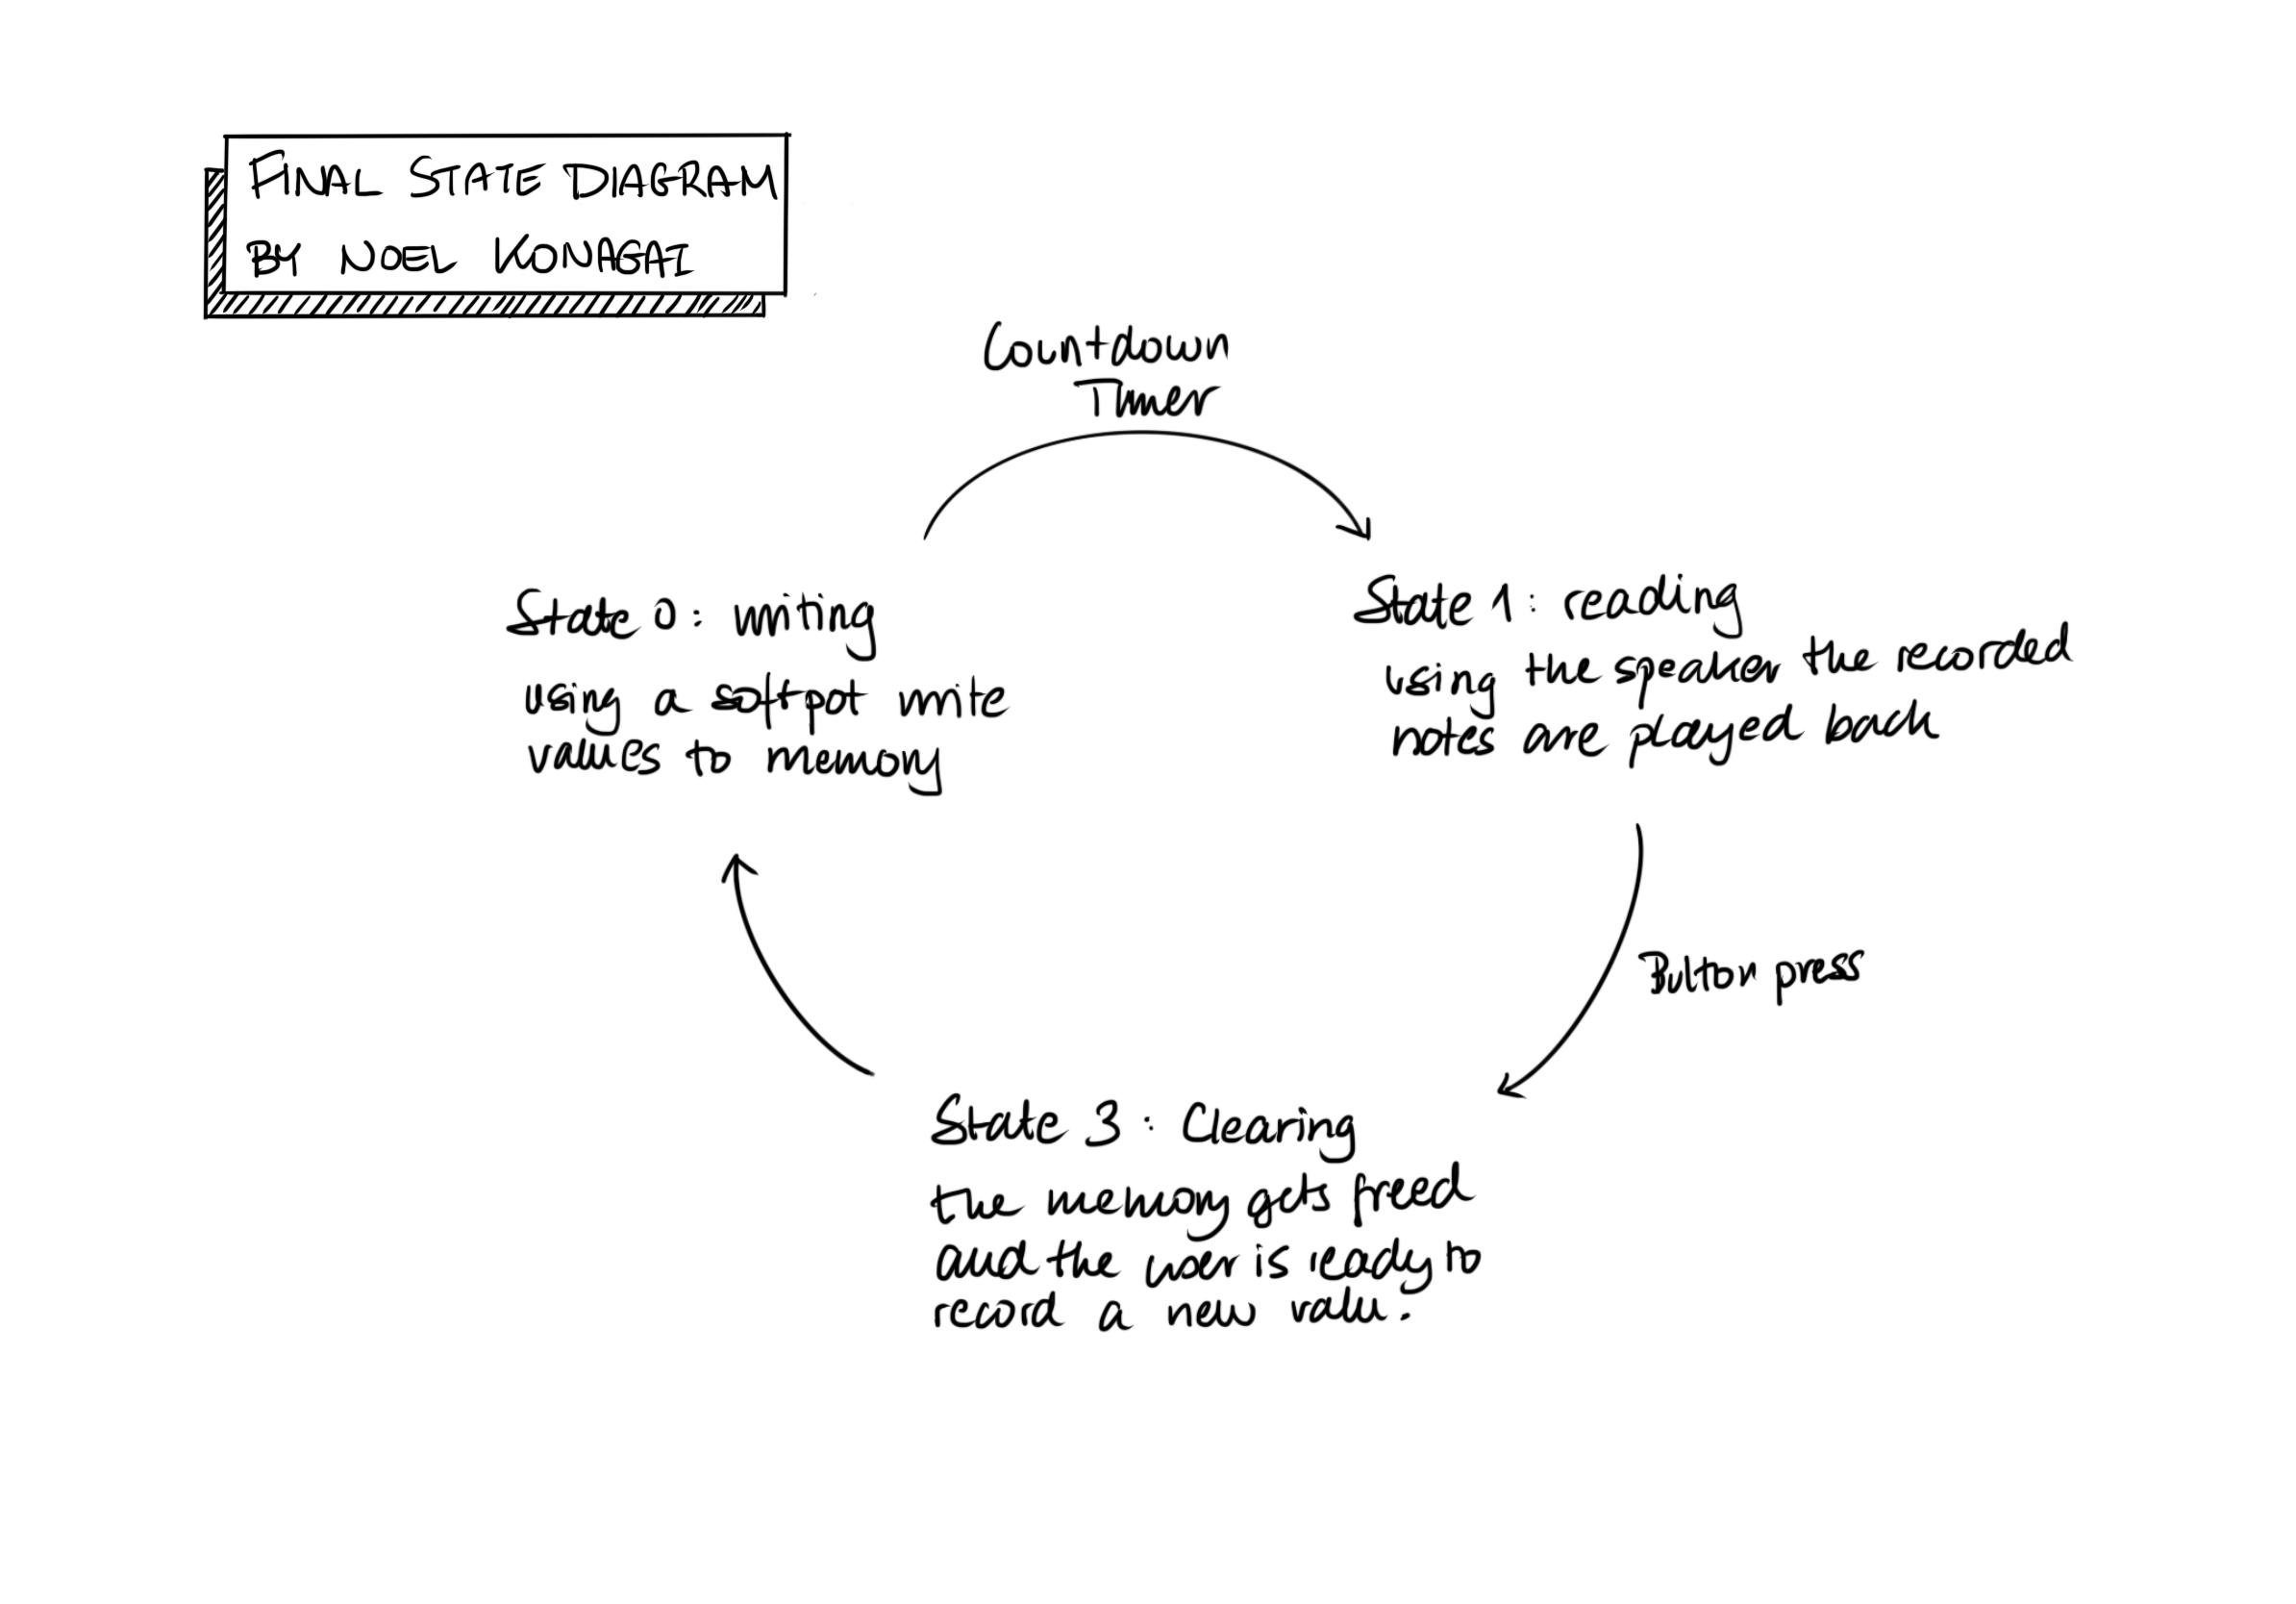 FINAL STATE DIAGRAM
BY NOEL KONAGAI
Countdown
Timer
State 0: writing
using a softpot write
values to memory
State 1: reading
using the speaker the recorded
notes are played back
Button press
State 3: Clearing
the memory gets freed
and the user is ready to
record a new valu.